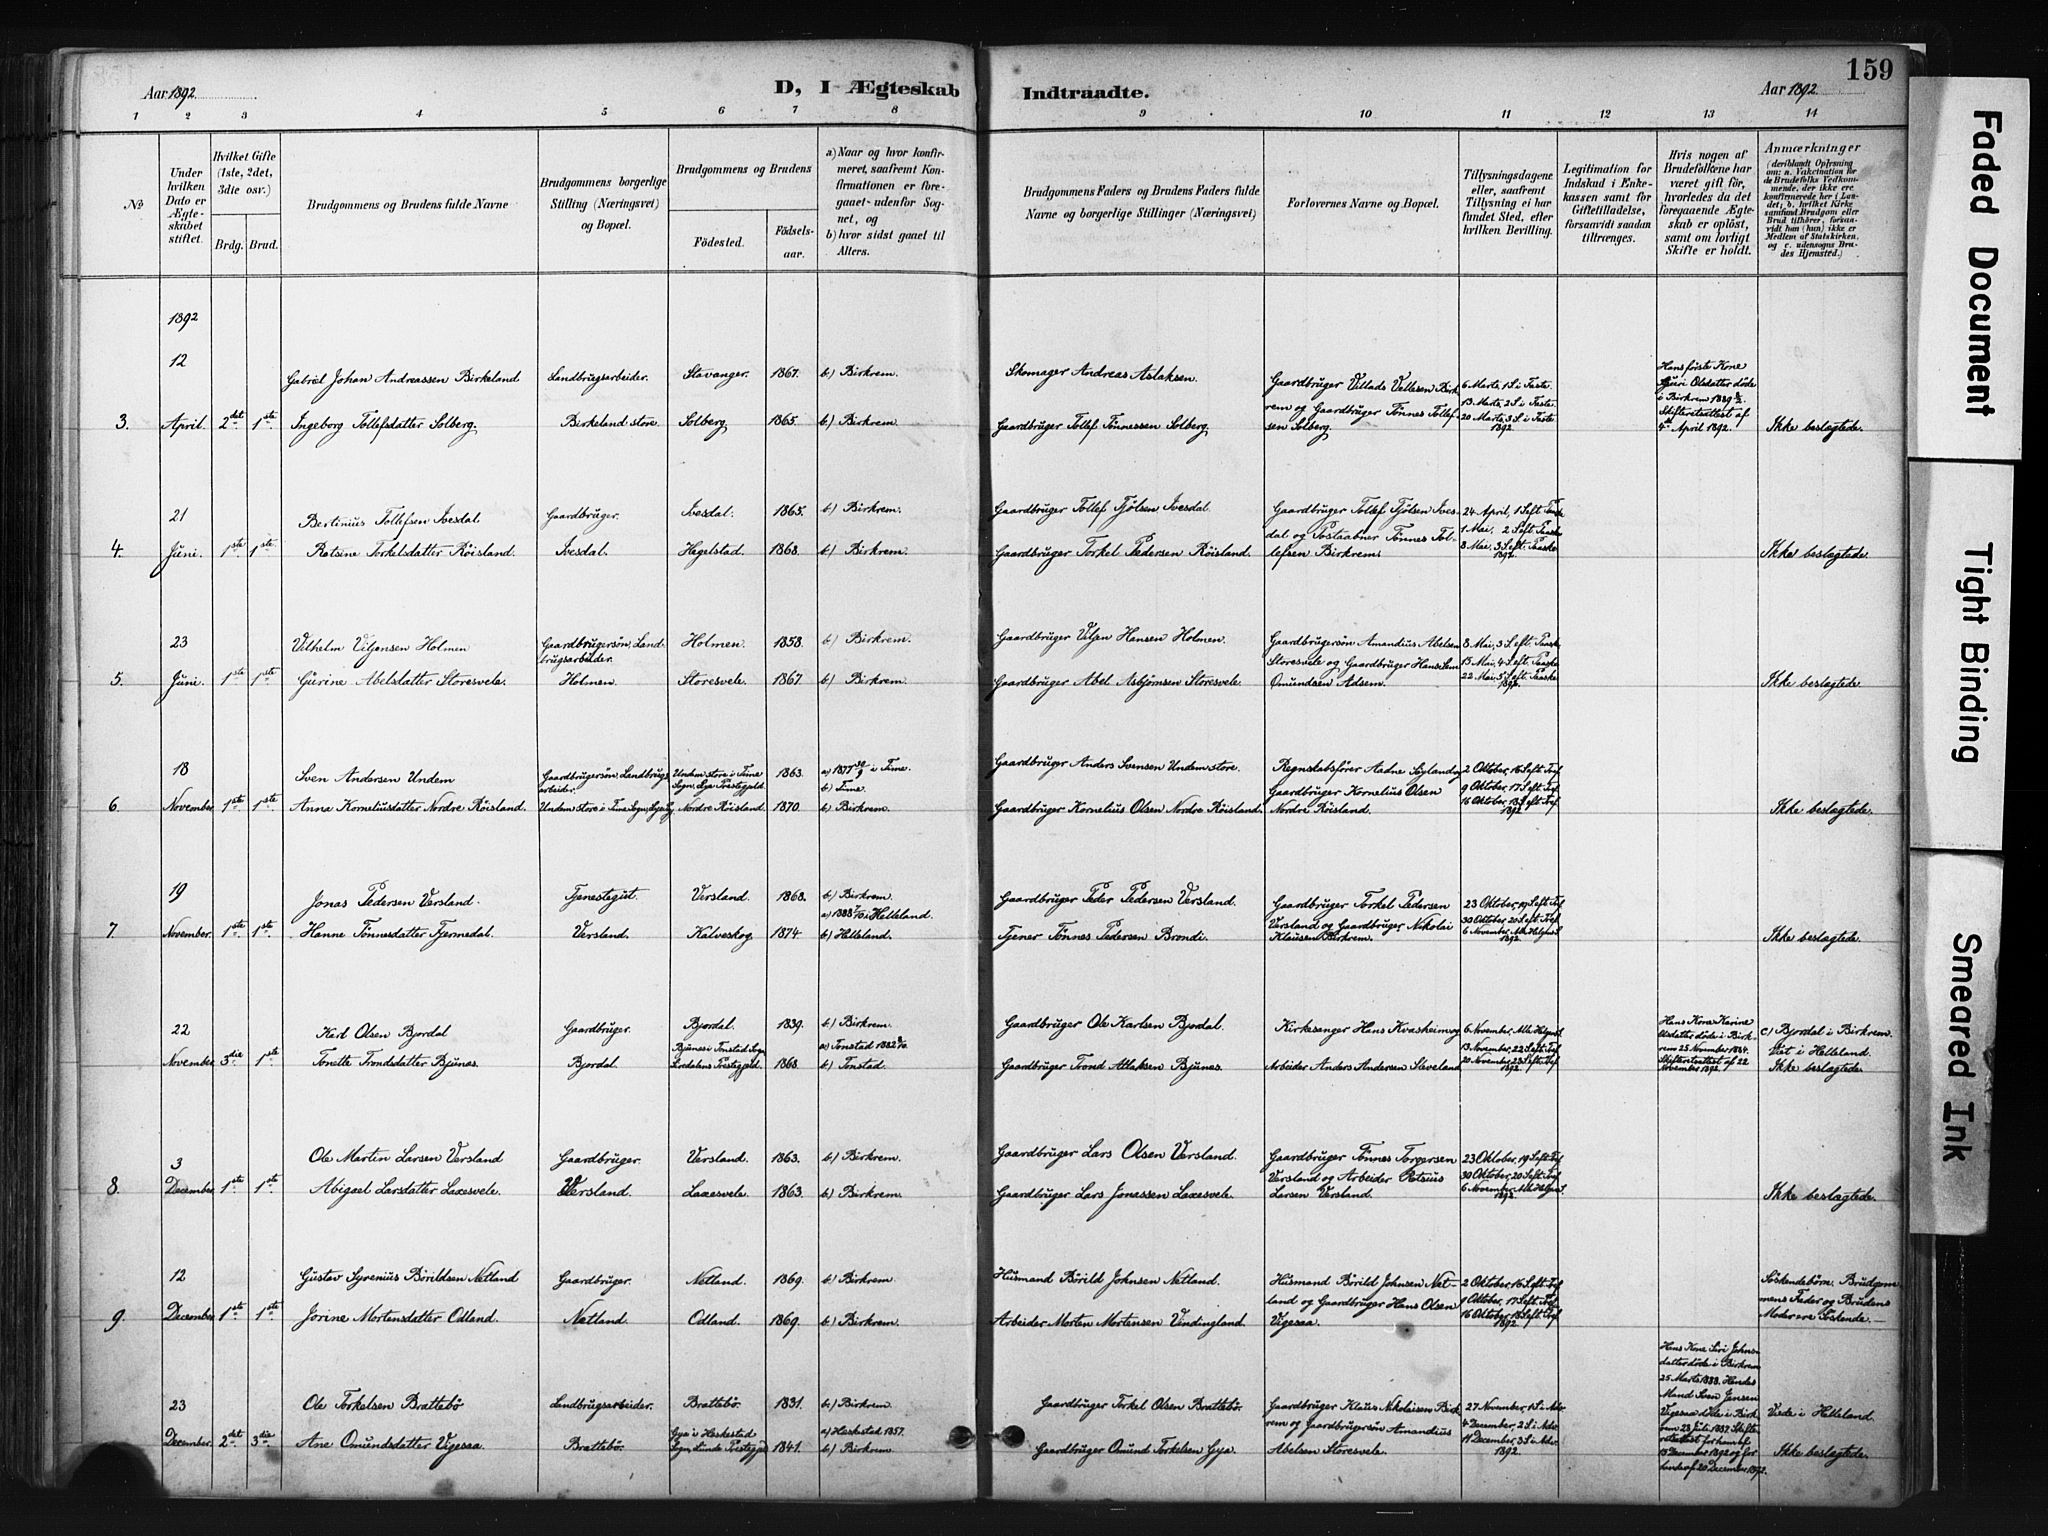 159
Aar 1892
D, I Ægteskab Indtraadte.
Aar 1892
1 2 3 4 5 6 7 8 9 10 11 12 13 14
No
Under hvilken Dato er Ægteskabet stiftet.
Hvilket Gifte (1ste, 2det, 3die osv.)
Brdg. Brud.
Brudgommens og Brudens fulde Navne
Brudgommens borgerlige Stilling (Næringsvei) og Bopæl.
Brudgommens og Brudens
Födested.
Födselsaar.
a) Naar og hvor konfirmeret, saafremt Konfirmationen er foregaaet udenfor Sognet, og
b) hvor sidst gaaet til Alters.
Brudgommens Faders og Brudens Faders fulde Navne og borgerlige Stillinger (Næringsvei)
Forlovernes Navne og Bopæl.
Tillysningsdagene eller, saafremt Tillysning ei har fundet Sted, efter hvilken Bevilling.
Legitimation for Indskud i Enkekassen samt for Giftetilladelse, forsaavidt saadan tiltrænges.
Hvis nogen af Brudefolkene har været gift för, hvorledes da det foregaaende Ægteskab er oplöst, samt om lovligt Skifte er holdt.
Anmærkninger
(deriblandt Oplysning om: a. Vakcination for de Brudefolks Vedkommende, der ikke ere konfirmerede her i Landet; b. hvilket Kirkesamfund Brudgom eller Brud tilhörer, forsaavidt han (hun) ikke er Medlem af Statskirken, og c. udensogns Brudes Hjemsted.)
1892
12 Gabriel Johan Andreassen Birkeland Landbrugsarbeider. Stavanger. 1867. b) Birkrem. Skomager Andreas Aslaksen. Gaardbruger Villads Vellesen Birk 6 Marts, 1 S. i Faste. Hans første Kone
rem og Gaardbruger Tønnes Tollef- 13 Marts, 2 S. i Faste Olsdatter døde i Birkrem 1889
3. April. 2det 1ste Ingeborg Tollefsdatter Solberg. Birkeland store. Solberg. 1865. b) Birkrem. Gaardbruger Tollef Tønnessen Solberg. sen Solberg. 20 Marts, 3 S. i Faste 1892. Skifteretsattest af 4de April 1892. Ikke beslægtede.
21 Bertinius Tollefsen Ivesdal Gaardbruger. Ivesdal. 1865. b) Birkrem. Gaardbruger Tollef Fjølsen Ivesdal Gaardbruger Tollef Fjølsen Ives- 24 April, 1 S. eft. Paaske
dal og Postaabner Tønnes Tol- 1 Mai, 2 S. eft. Paaske
4. Juni. 1ste 1ste Ratsine Torkelsdatter Røisland. Ivesdal. Hegelstad. 1868. b) Birkrem. Gaardbruger Torkel Pedersen Røisland. lefsen Birkrem. 8 Mai, 3 S. eft. Paaske 1892. Ikke beslægtede.
23 Vilhelm Viljensen Holmen Gaardbrugersøn, Landbrugsarbeider. Holmen. 1858. b) Birkrem. Gaardbruger Viljen Hansen Holmen. Gaardbrugersøn Amandius Abelsen 8 Mai, 3 S. eft. Paaske
Storesvele og Gaardbruger Hans Sem 15 Mai, 4 S. eft. Paaske
5. Juni. 1ste 1ste Gurine Abelsdatter Storesvele. Holmen. Storesvele. 1867 b) Birkrem. Gaardbruger Abel Asbjørnsen Storesvele. Omundsen Adsem. 22 Mai, 5 S. eft. Paaske 1892. Ikke beslægtede.
18 Sven Andersen Undem Gaardbrugersøn, Landbrugsarbeider. Undem store i Time Sogn, Lye Prestegjeld. 1863. a) 1877 30/9 i Time. b) Time. Gaardbruger Anders Svensen Undem store. Regnskabsfører Aadne Søyland og 2 Oktober, 16 S. eft. Tref.
Gaardbruger Kornelius Olsen 9 Oktober, 17 S. eft. Tref.
6. November. 1ste 1ste Anna Korneliusdatter Nordre Røisland. Undem store i Time Sogn, Lye Pg. Nordre Røisland. 1870. b) Birkrem. Gaardbruger Kornelius Olsen Nordre Røisland. Nordre Røisland. 16 Oktober, 18 S. eft. Tref. 1892. Ikke beslægtede.
19 Jonas Pedersen Versland. Tjenestegut. Versland. 1868. b) Birkrem. Gaardbruger Peder Pedersen Versland. Gaardbruger Torkel Pedersen 23 Oktober, 19 S. eft. Tref.
a) 1888 i Helleland. Versland og Gaardbruger Nikolai 30 Oktober, 20 S. eft. Tref.
7. November. 1ste 1ste Hanne Tønnesdatter Tjermedal. Versland. Kalveskog. 1874 b) Helleland. Tjener Tønnes Pedersen Brondi. Klausen Birkrem. 6 November, Alle Helgens S. 1892. Ikke beslægtede.
22 Karl Olsen Bjordal Gaardbruger. Bjordal. 1839. b) Birkrem. Gaardbruger Ole Karlsen Bjordal. Kirkesanger Hans Kvasheim og 6 November, Alle Helgens S. Hans Kone Karine Olsdatter døde i Birkrem 25 November 1884. c) Bjordal i Birkrem.
Bjunes i Tonstad Sogn a) Tonstad 1882 13 November, 22 S. eft. Tref. Viet i Helleland.
November. 3die 1ste Tonette Trondsdatter Bjunes. Bjordal. Sirdalens Prestegjeld. 1868. b) Tonstad. Gaardbruger Trond Atlaksen Bjunes. Arbeider Anders Andersen Sleveland 20 November, 23 S. eft. Tref. 1892. Skifteretsattest af 22 November 1892. Ikke beslægtede.
3 Ole Martin Larsen Versland Gaardbruger. Versland. 1863. b) Birkrem. Gaardbruger Lars Olsen Versland. Gaardbruger Tønnes Torgersen 23 Oktober, 19 S. eft. Tref.
Versland og Arbeider Ratsius 30 Oktober, 20 S. eft. Tref.
8. December. 1ste 1ste Abigael Larsdatter Laxesvele. Versland. Laxesvele. 1863. b) Birkrem. Gaardbruger Lars Jonassen Laxesvele. Larsen Versland. 6 November, Alle Helgens S. 1892. Ikke beslægtede.
12 Gustav Syrenius Børildsen Netland Gaardbruger. Netland. 1869. b) Birkrem. Husmand Børild Johnsen Netland. Husmand Børild Johnsen Net- 2 Oktober, 16 S. eft. Tref. Søskendebørn. Brudgom-
land og Gaardbruger Hans Olsen 9 Oktober, 17 S. eft. Tref. mens Fader og Brudens
9. December. 1ste 1ste Jorine Mortensdatter Odland. Netland. Odland. 1869. b) Birkrem. Arbeider Morten Mortensen Vindingland Vigesaa. 16 Oktober, 18 S. eft. Tref. 1892. Moder ere Søskende.
23 Ole Torkelsen Brattebø Landbrugsarbeider. Brattebø. 1831. b) Birkrem. Gaardbruger Torkel Olsen Brattebø. Gaardbruger Klaus Nikolaisen Birk 27 November, 1 S. i Adv. Hans Kone Siri Johnsdatter døde i Birkrem 25 Marts 1888. Hendes Mand Sven Jensen Vigesaa døde i Birkrem 23 Juli 1887. Viede i Helleland.
Gya i Heskestad a) Heskestad 1857. rem og Gaardbrugersøn Amandius 4 December, 2 S. i Adv.
December. 2det 3die Ane Omundsdatter Vigesaa. Brattebø. Sogn, Lunde Prestegjd. 1841. b) Birkrem Gaardbruger Omund Torkelsen Gya. Abelsen Storesvele. 11 December, 3 S. i Adv. 1892. Skifteretsattest for ham af 15 December 1892 og for hende af 20 December 1892. Ikke beslægtede.
Faded Document
Tight Binding
Smeared Ink